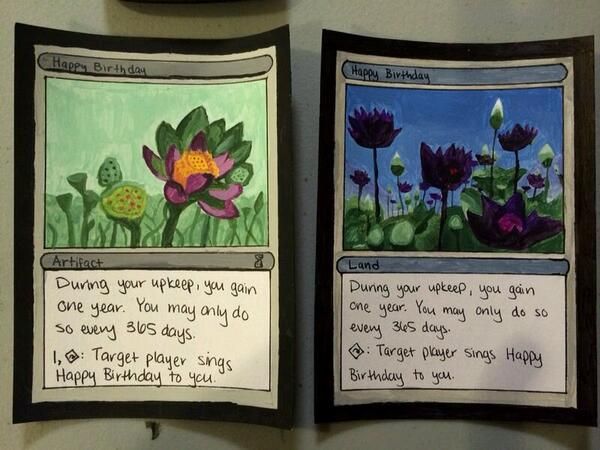 Happy Birthday
Artifact
During your upkeep, you gain
one year. You may only do
so every 365 days.
1, : Target player sings
Happy Birthday to you.
Happy Birthday
Land
During your upkeep, you gain
one year. You may only do so
every 365 days.
: Target player sings Happy
Birthday to you.